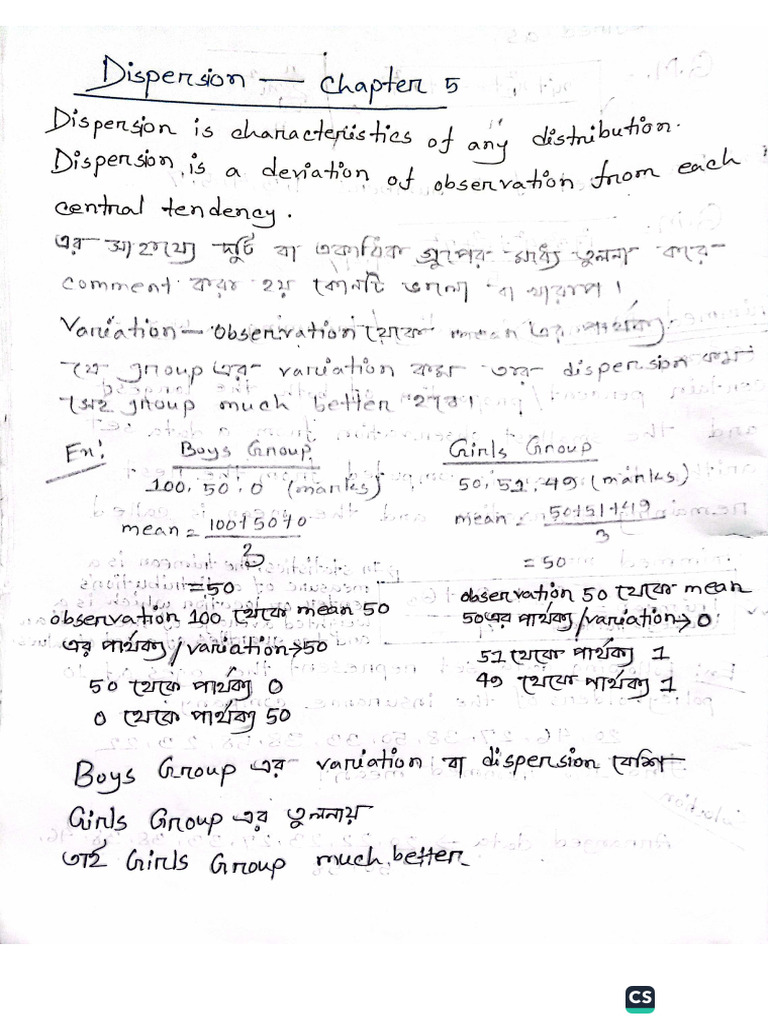 Dispersion — Chapter 5
Dispersion is characteristics of any distribution.
Dispersion is a deviation of observation from each
central tendency.
এর সাহায্যে দুটি বা একাধিক গ্রুপের মধ্যে তুলনা করে
comment করা হয় কোনটি ভালো বা খারাপ।
Variation — observation থেকে mean এর পার্থক্য
যে group এর variation কম তার dispersion কম
সেই group much better হবে।
Ex: Boys Group Girls Group
100, 50, 0 (marks) 50, 51, 49 (marks)
mean = 100+50+0 / 3 mean = 50+51+49 / 3
= 50 = 50
observation 100 থেকে mean 50 observation 50 থেকে mean
এর পার্থক্য/variation→50 50এর পার্থক্য/variation→0
50 থেকে পার্থক্য 0 51 থেকে পার্থক্য 1
0 থেকে পার্থক্য 50 49 থেকে পার্থক্য 1
Boys Group এর variation বা dispersion বেশি
Girls Group এর তুলনায়
তাই Girls Group much better
CS